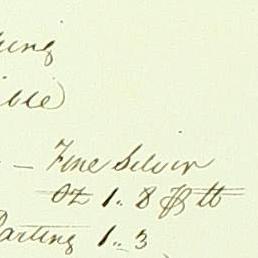 ible
— Fine Silver
oz 1.. 8 ℔ tt
Parting 1.. 3